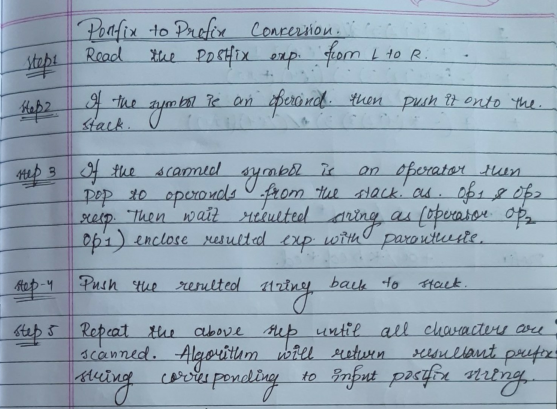 Postfix to Prefix Conversion.
step1 Read the Postfix exp. from L to R.
step2 If the symbol is an operand. then push it onto the
stack.
step 3 If the scanned symbol is an operator then
pop to operands from the stack. as. Op1 & Op2
resp. Then wait resulted string as (operator Op2
Op1) enclose resulted exp. with paranthesis.
step-4 Push the resulted string back to stack.
step 5 Repeat the above step until all characters are
scanned. Algorithm will return resultant prefix
string corresponding to input postfix string.